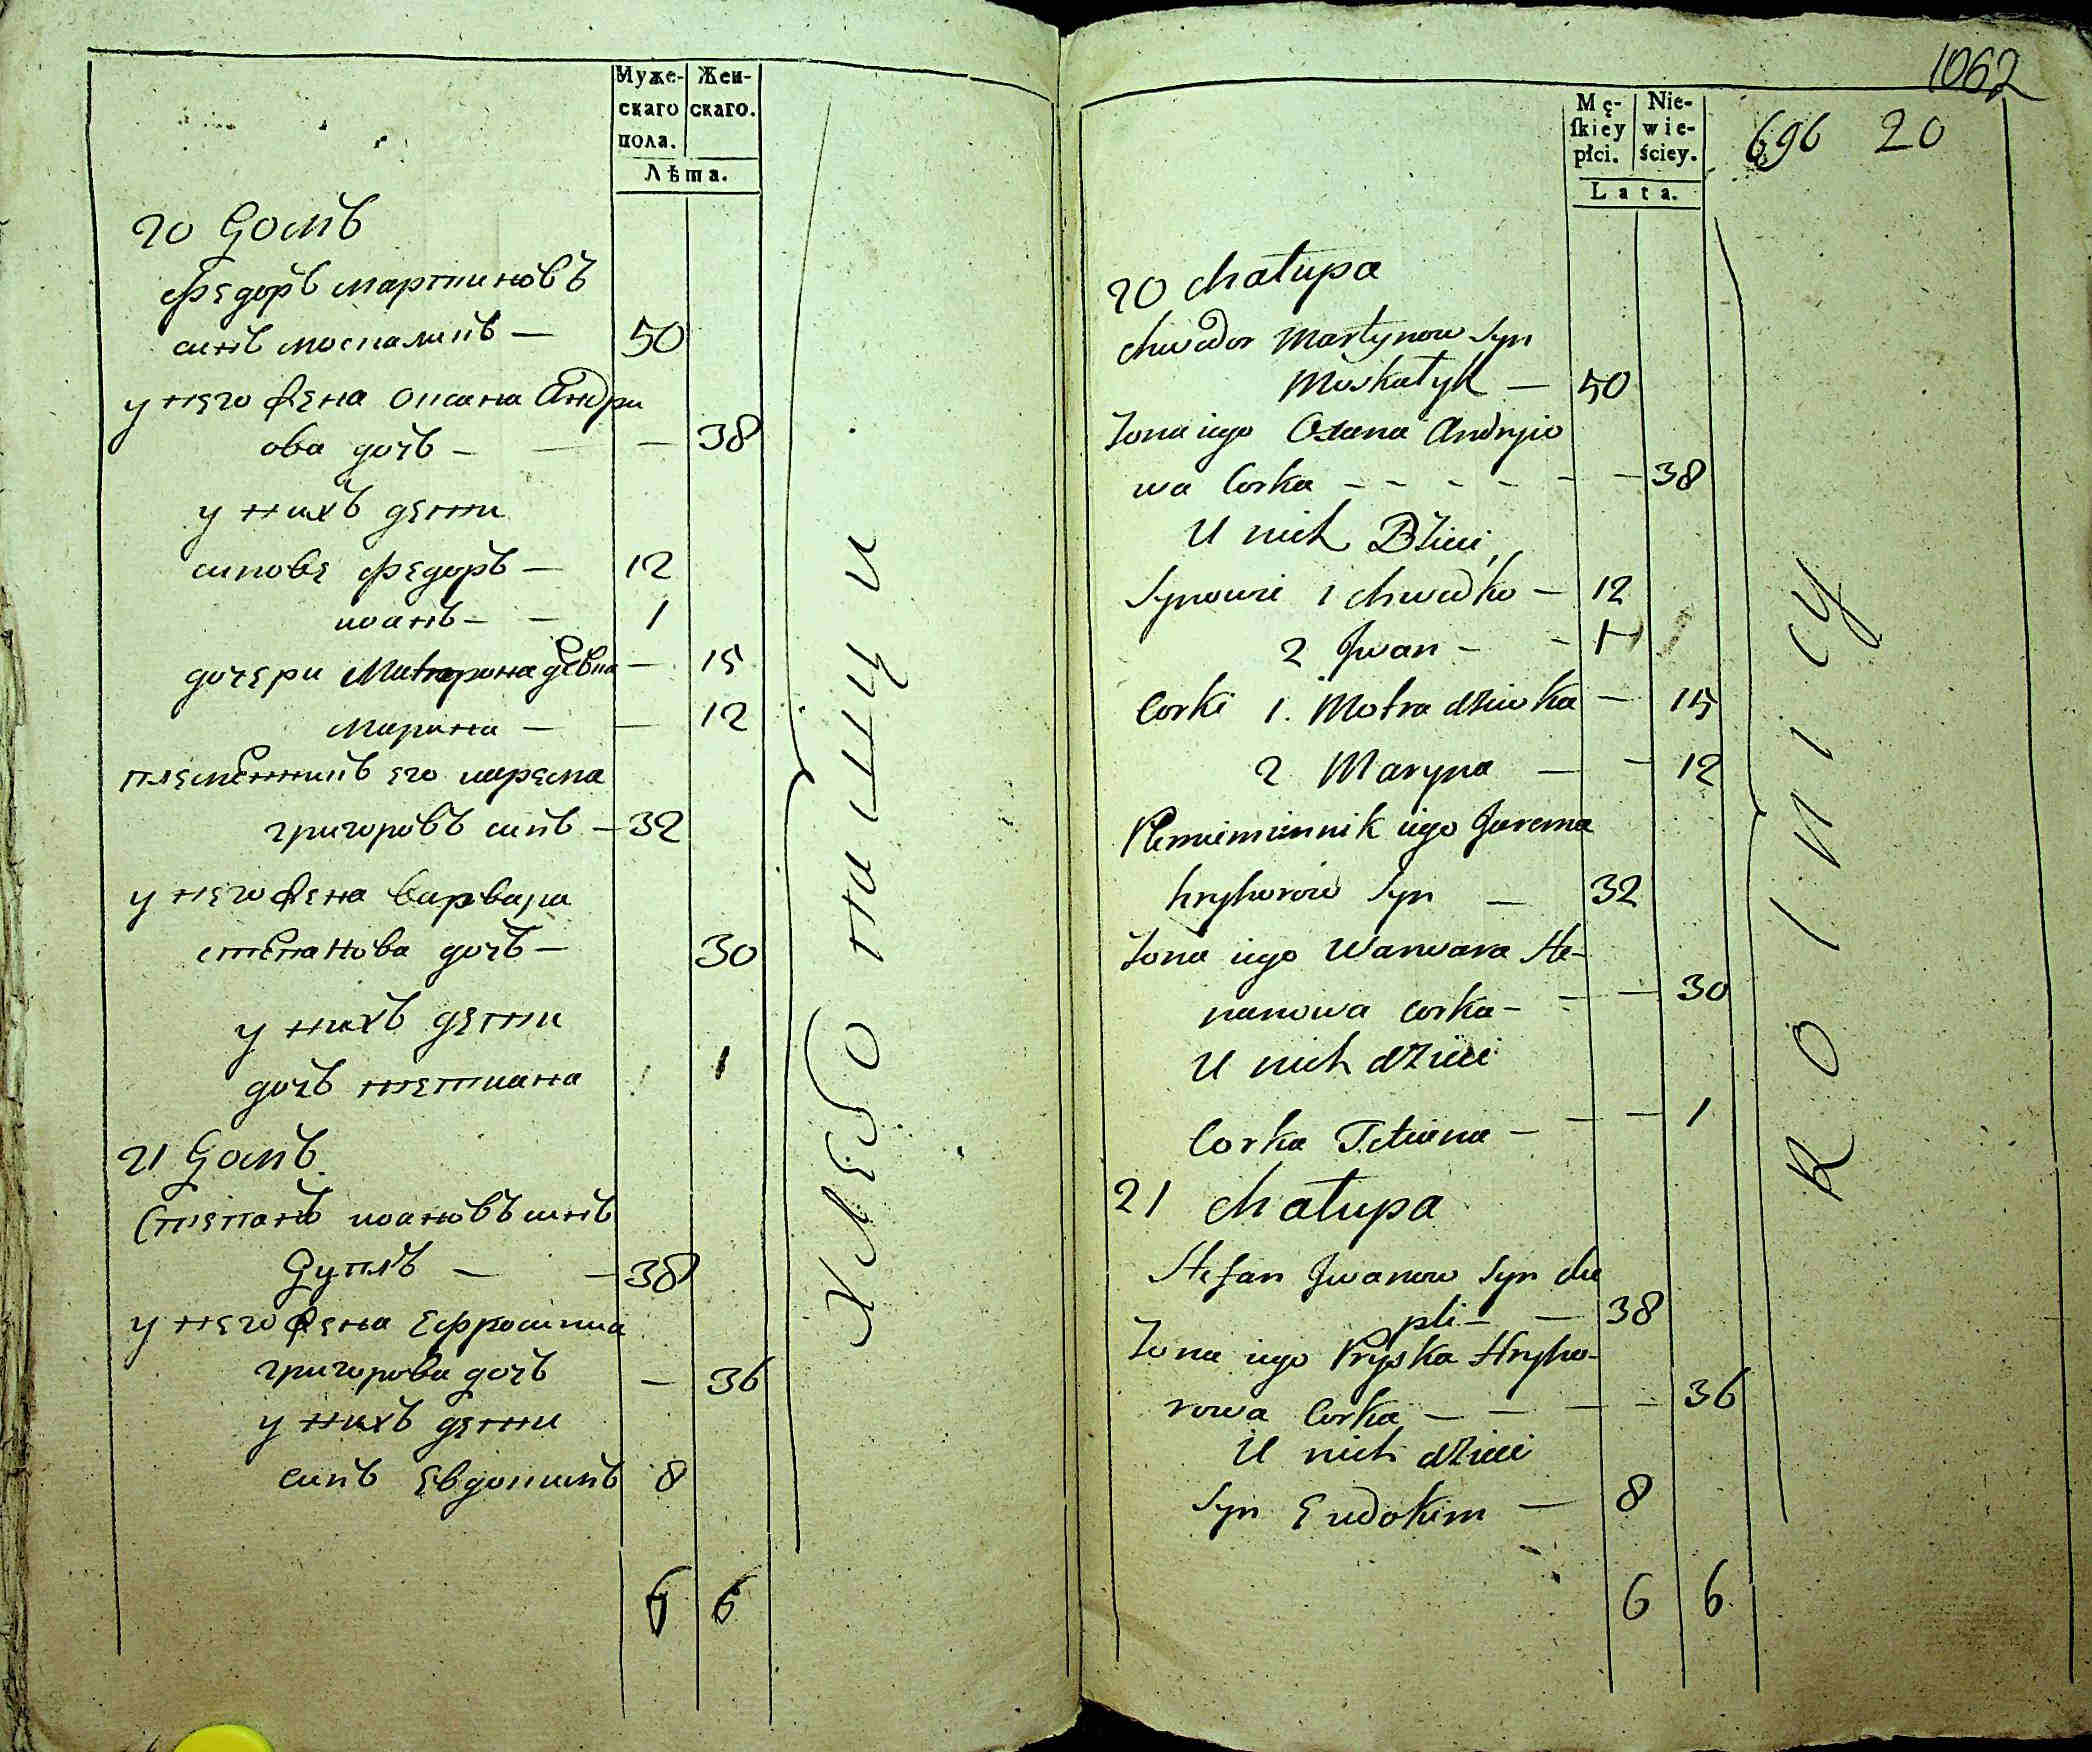 Муже-
скаго
пола.
Жен-
скаго.
Лѣта.
20 Домъ
Федоръ Мартиновъ
синъ москаликъ — 50
у него жена Оксана Андри
ова дочъ — — 38
у нихъ дети
синове Федоръ — 12
иоанъ — — 1
дочери Митрона девка — 15
Марина — — 12
племенникъ его иарема
григоровъ синъ — 32
у него жена варвара
степанова дочъ — 30
у нихъ дети
дочъ тетиана 1
21 Домъ.
Степанъ иоановъ синъ
Дупля — — 38
у него жена Ефросиниа
григорова дочъ — 36
у нихъ дети
синъ Евдокимъ 8
6 6
хлебопашци
1062
696 20
Mę-
ſkiey
płci.
Nie-
wie-
ściey.
Lata.
20 Chałupa
Chwedor Martynow Syn
Moskałyk — 50
Żona iego Oxana Andryio
wa Corka - - - - - — 38
U nich Dzieci
Synowie 1 Chwedko — 12
2 Jwan - - 1
Corki 1. Motra dziewka — 15
2 Maryna — - 12
Plemiemiennik iego Jarema
hryhorow Syn — 32
Żona iego Warwara Ste-
panowa Corka - - — 30
U nich dzieci
Corka Tetiana - — — 1
21 Chałupa
Stefan Jwanow Syn du
pli - — 38
Żona iego Pryska Hryho-
rowa Corka — — — - 36
U nich dzieci
Syn Eudokim — 8
6 6
Rolnicy